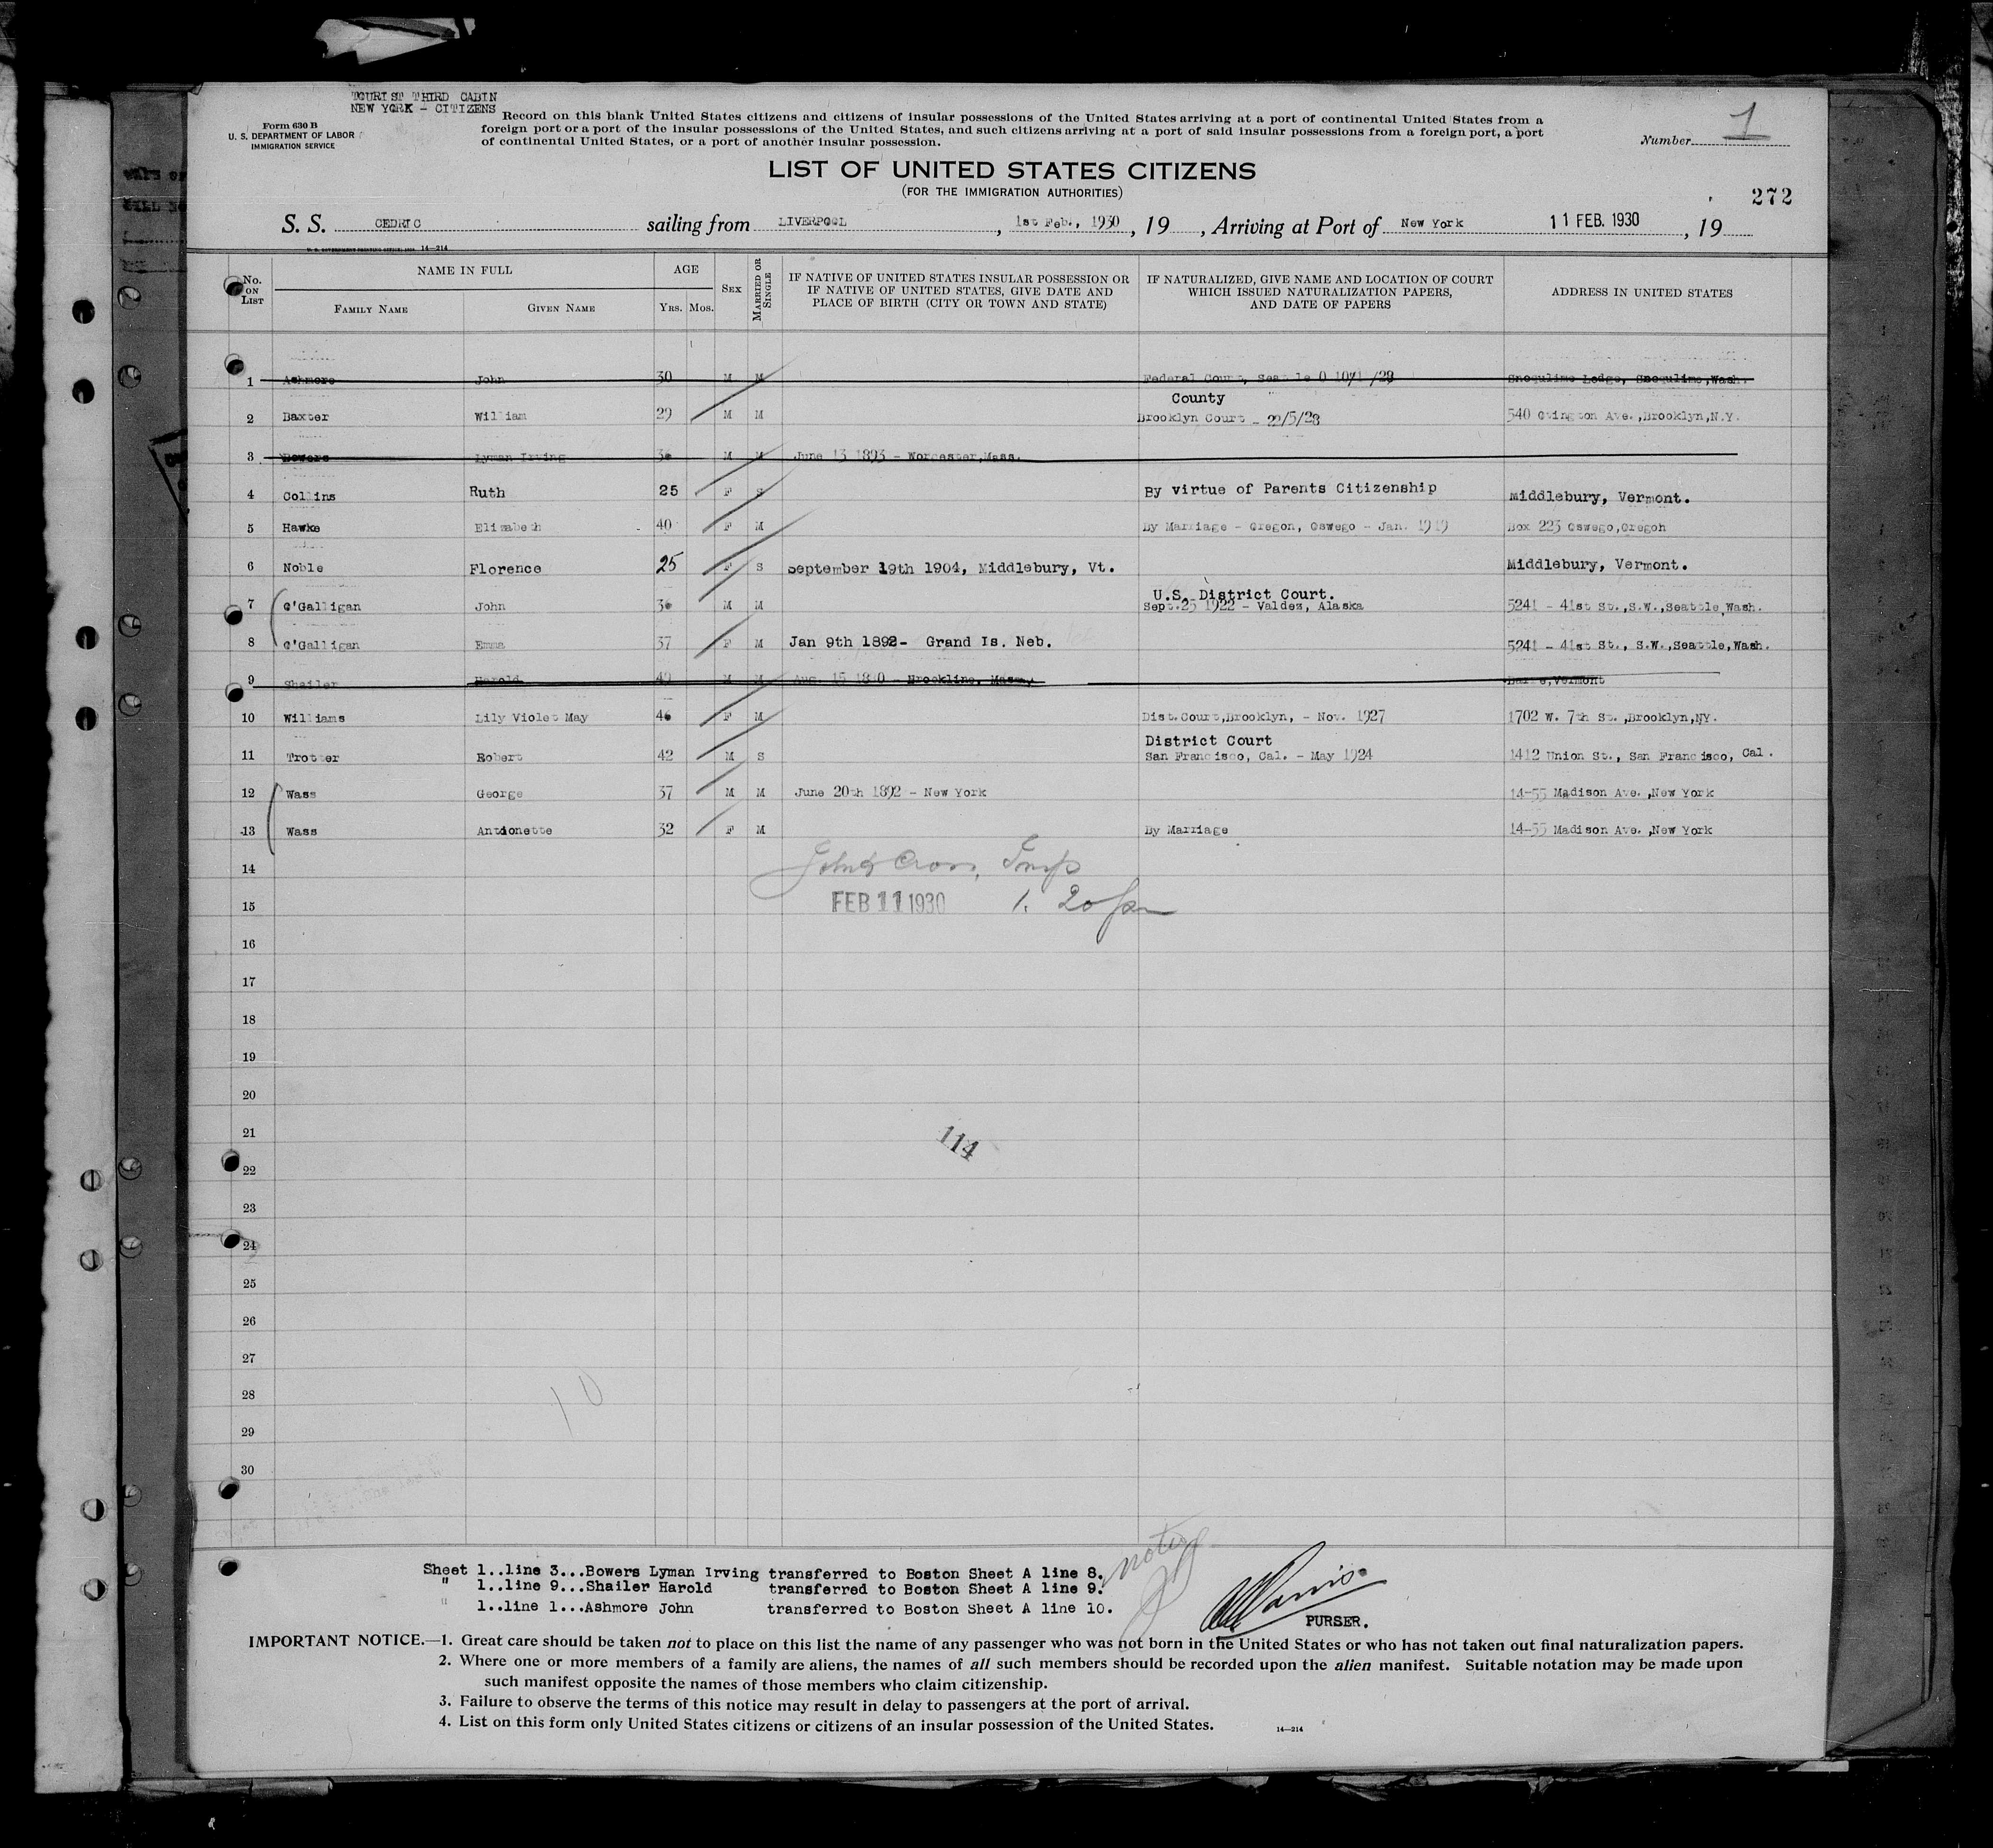 TOURIST THIRD CABIN
NEW YORK - CITIZENS
Form 630 B
U. S. DEPARTMENT OF LABOR
IMMIGRATION SERVICE
Record on this blank United States citizens and citizens of insular possessions of the United States arriving at a port of continental United States from a
foreign port or a port of the insular possessions of the United States, and such citizens arriving at a port of said insular possessions from a foreign port, a port
of continental United States, or a port of another insular possession.
Number 1
LIST OF UNITED STATES CITIZENS
(FOR THE IMMIGRATION AUTHORITIES)
272
S. S. CEDRIC sailing from LIVERPOOL, 1st Feb., 1930, 19 , Arriving at Port of New York 11 FEB. 1930, 19
14-214
No. ON LIST NAME IN FULL AGE SEX MARRIED OR SINGLE IF NATIVE OF UNITED STATES INSULAR POSSESSION OR IF NATIVE OF UNITED STATES, GIVE DATE AND PLACE OF BIRTH (CITY OR TOWN AND STATE) IF NATURALIZED, GIVE NAME AND LOCATION OF COURT WHICH ISSUED NATURALIZATION PAPERS, AND DATE OF PAPERS ADDRESS IN UNITED STATES
FAMILY NAME GIVEN NAME YRS. MOS.
1 Ashmore John 30 M M Federal Court, Seattle Snoqulime Lodge, Snoqulime, Wash.
County
2 Baxter William 29 M M Brooklyn Court - 22/5/28 540 Ovington Ave., Brooklyn, N.Y.
3 Bowers Lyman Irving 36 M M June 13 1893 - Worcester, Mass.
4 Collins Ruth 25 F S By virtue of Parents Citizenship Middlebury, Vermont.
5 Hawke Elizabeth 40 F M By Marriage - Oregon, Oswego - Jan. 1919 Box 223 Oswego, Oregon
6 Noble Florence 25 F S September 19th 1904, Middlebury, Vt. Middlebury, Vermont.
U.S. District Court.
7 O'Galligan John 36 M M Sept. 25 1922 - Valdez, Alaska 5241 - 41st St., S.W., Seattle, Wash.
8 O'Galligan Emma 37 F M Jan 9th 1892- Grand Is. Neb. 5241 - 41st St., S.W., Seattle, Wash.
9 Shailer Harold 49 M M Aug. 15 1880 - Brookline, Mass. Barre, Vermont
10 Williams Lily Violet May 46 F M Dist. Court, Brooklyn, - Nov. 1927 1702 W. 7th St., Brooklyn, NY.
District Court
11 Trotter Robert 42 M S San Francisco, Cal. - May 1924 1412 Union St., San Francisco, Cal.
12 Wass George 37 M M June 20th 1892 - New York 14-55 Madison Ave., New York
13 Wass Antionette 32 F M By Marriage 14-55 Madison Ave., New York
14 Cross, Insp
15 FEB 11 1930 1. 20 pm
16
17
18
19
20
21
114
22
23
24
25
26
27
28
10
29
30
Sheet 1..line 3...Bowers Lyman Irving transferred to Boston Sheet A line 8.
" 1..line 9...Shailer Harold transferred to Boston Sheet A line 9.
" 1..line 1...Ashmore John transferred to Boston Sheet A line 10.
noted
PURSER.
IMPORTANT NOTICE.—1. Great care should be taken not to place on this list the name of any passenger who was not born in the United States or who has not taken out final naturalization papers.
2. Where one or more members of a family are aliens, the names of all such members should be recorded upon the alien manifest. Suitable notation may be made upon
such manifest opposite the names of those members who claim citizenship.
3. Failure to observe the terms of this notice may result in delay to passengers at the port of arrival.
4. List on this form only United States citizens or citizens of an insular possession of the United States.
14-214